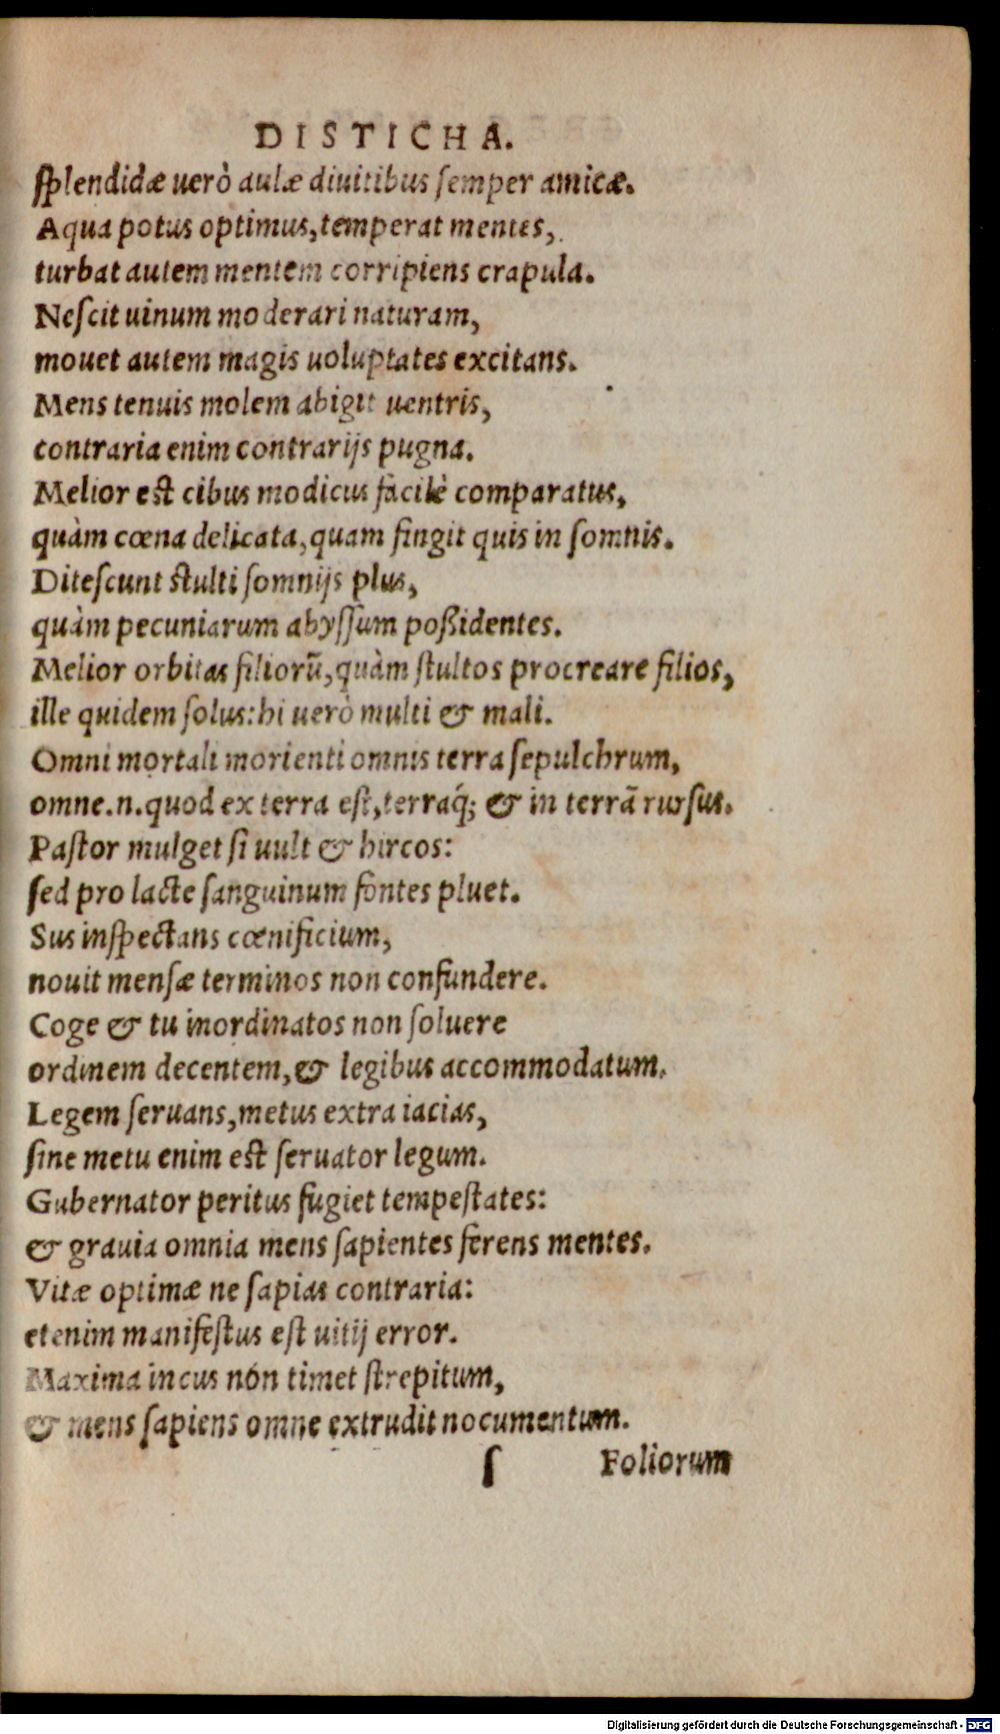 DISTICHA.
ſplendidæ uerò aulæ diuitibus ſemper amicæ.
Aqua potus optimus, temperat mentes,
turbat autem mentem corripiens crapula.
Neſcit uinum moderari naturam,
mouet autem magis uoluptates excitans.
Mens tenuis molem abigit uentris,
contraria enim contrarijs pugna.
Melior est cibus modicus facilè comparatus,
quàm cœna delicata, quam fingit quis in ſomnis.
Diteſcunt stulti ſomnijs plus,
quàm pecuniarum abyſſum poßidentes.
Melior orbitas filiorũ, quàm ſtultos procreare filios,
ille quidem ſolus: hi uerò multi & mali.
Omni mortali morienti omnis terra ſepulchrum,
omne.n.quod ex terra eſt, terraq́; & in terrã rurſus.
Paſtor mulget ſi uult & hircos:
ſed pro lacte ſanguinum fontes pluet.
Sus inſpectans cœnificium,
nouit menſæ terminos non confundere.
Coge & tu inordinatos non ſoluere
ordinem decentem, & legibus accommodatum.
Legem ſeruans, metus extra iacias,
ſine metu enim est ſeruator legum.
Gubernator peritus fugiet tempeſtates:
& grauia omnia mens ſapientes ferens mentes.
Vitæ optimæ ne ſapias contraria:
etenim manifeſtus eſt uitij error.
Maxima incus non timet ſtrepitum,
& mens ſapiens omne extrudit nocumentum.
ſ Foliorum
Digitalisierung gefördert durch die Deutsche Forschungsgemeinschaft - DFG